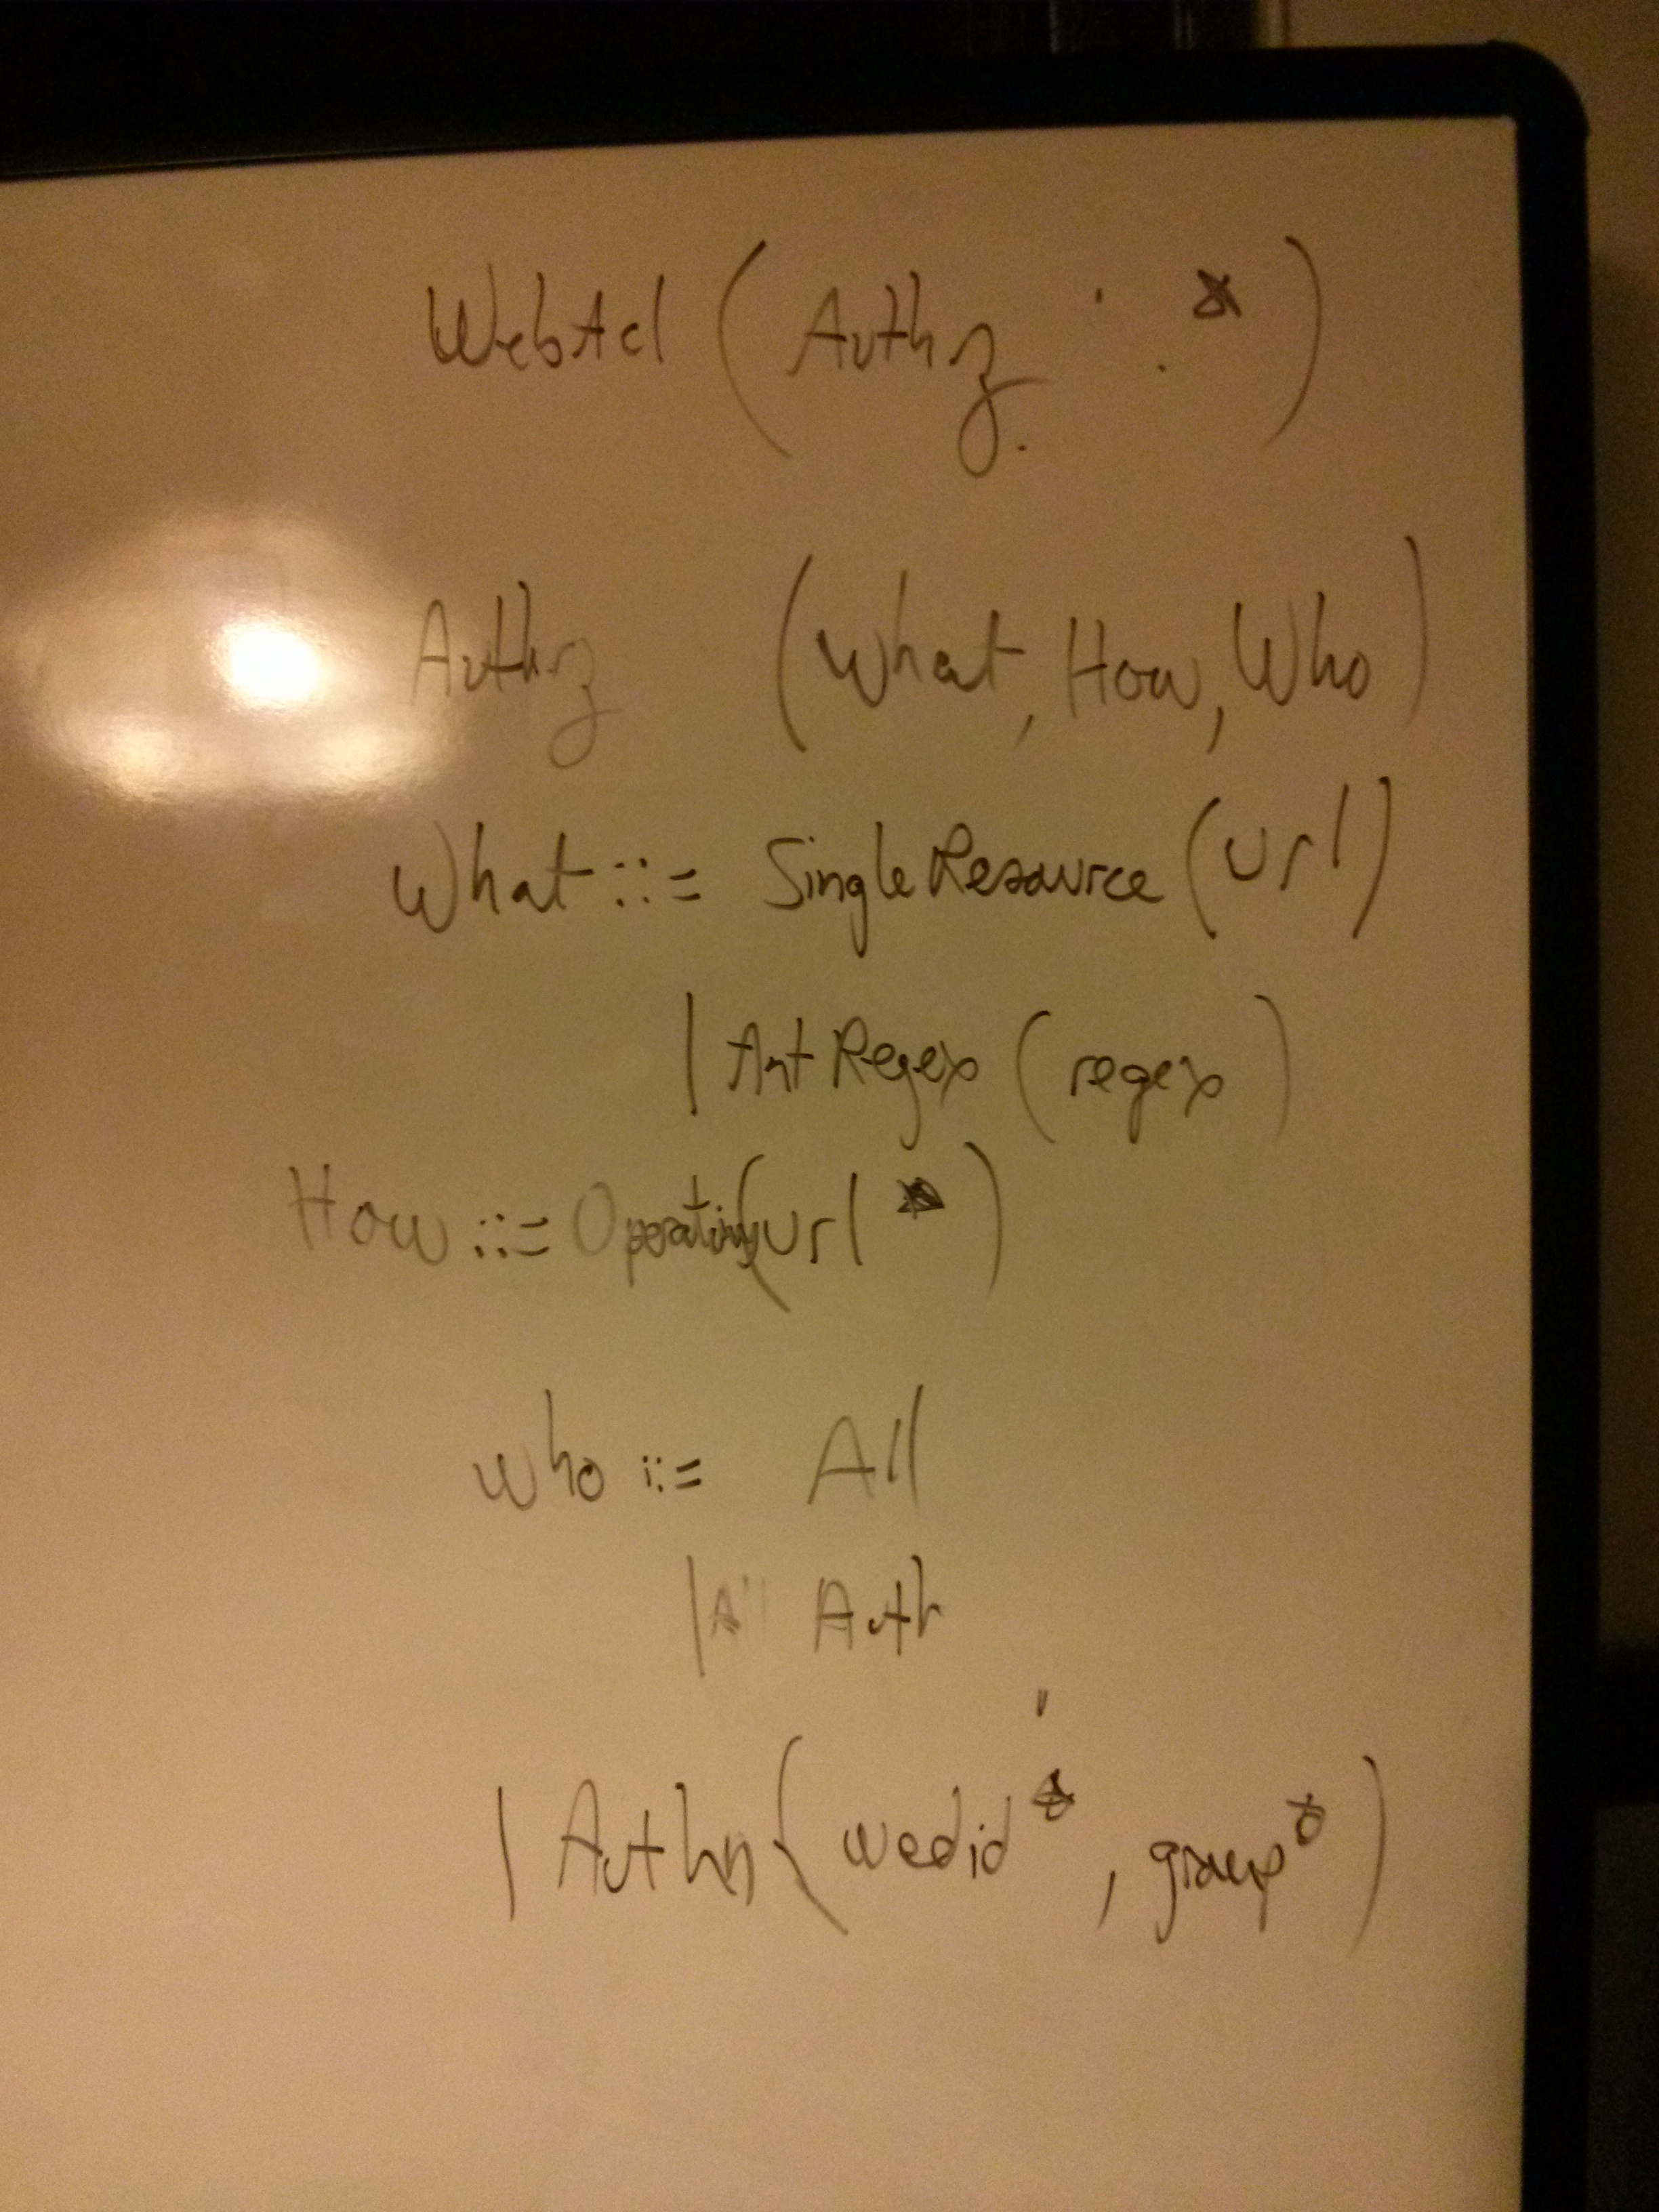 WebAcl ( Authz *)
Authz (What, How, Who)
What ::= SingleResource (url)
| AntRegex (regex)
How ::= Operation(url *)
who ::= All
| All Auth
| Authn (wedid*, group*)